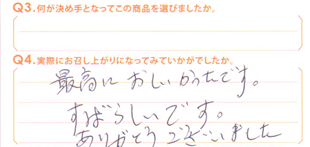 Q3.何が決め手となってこの商品を選びましたか。
Q4.実際にお召し上がりになってみていかがでしたか。
最高に おしいかったです。
すばらしいです。
ありがとうございました